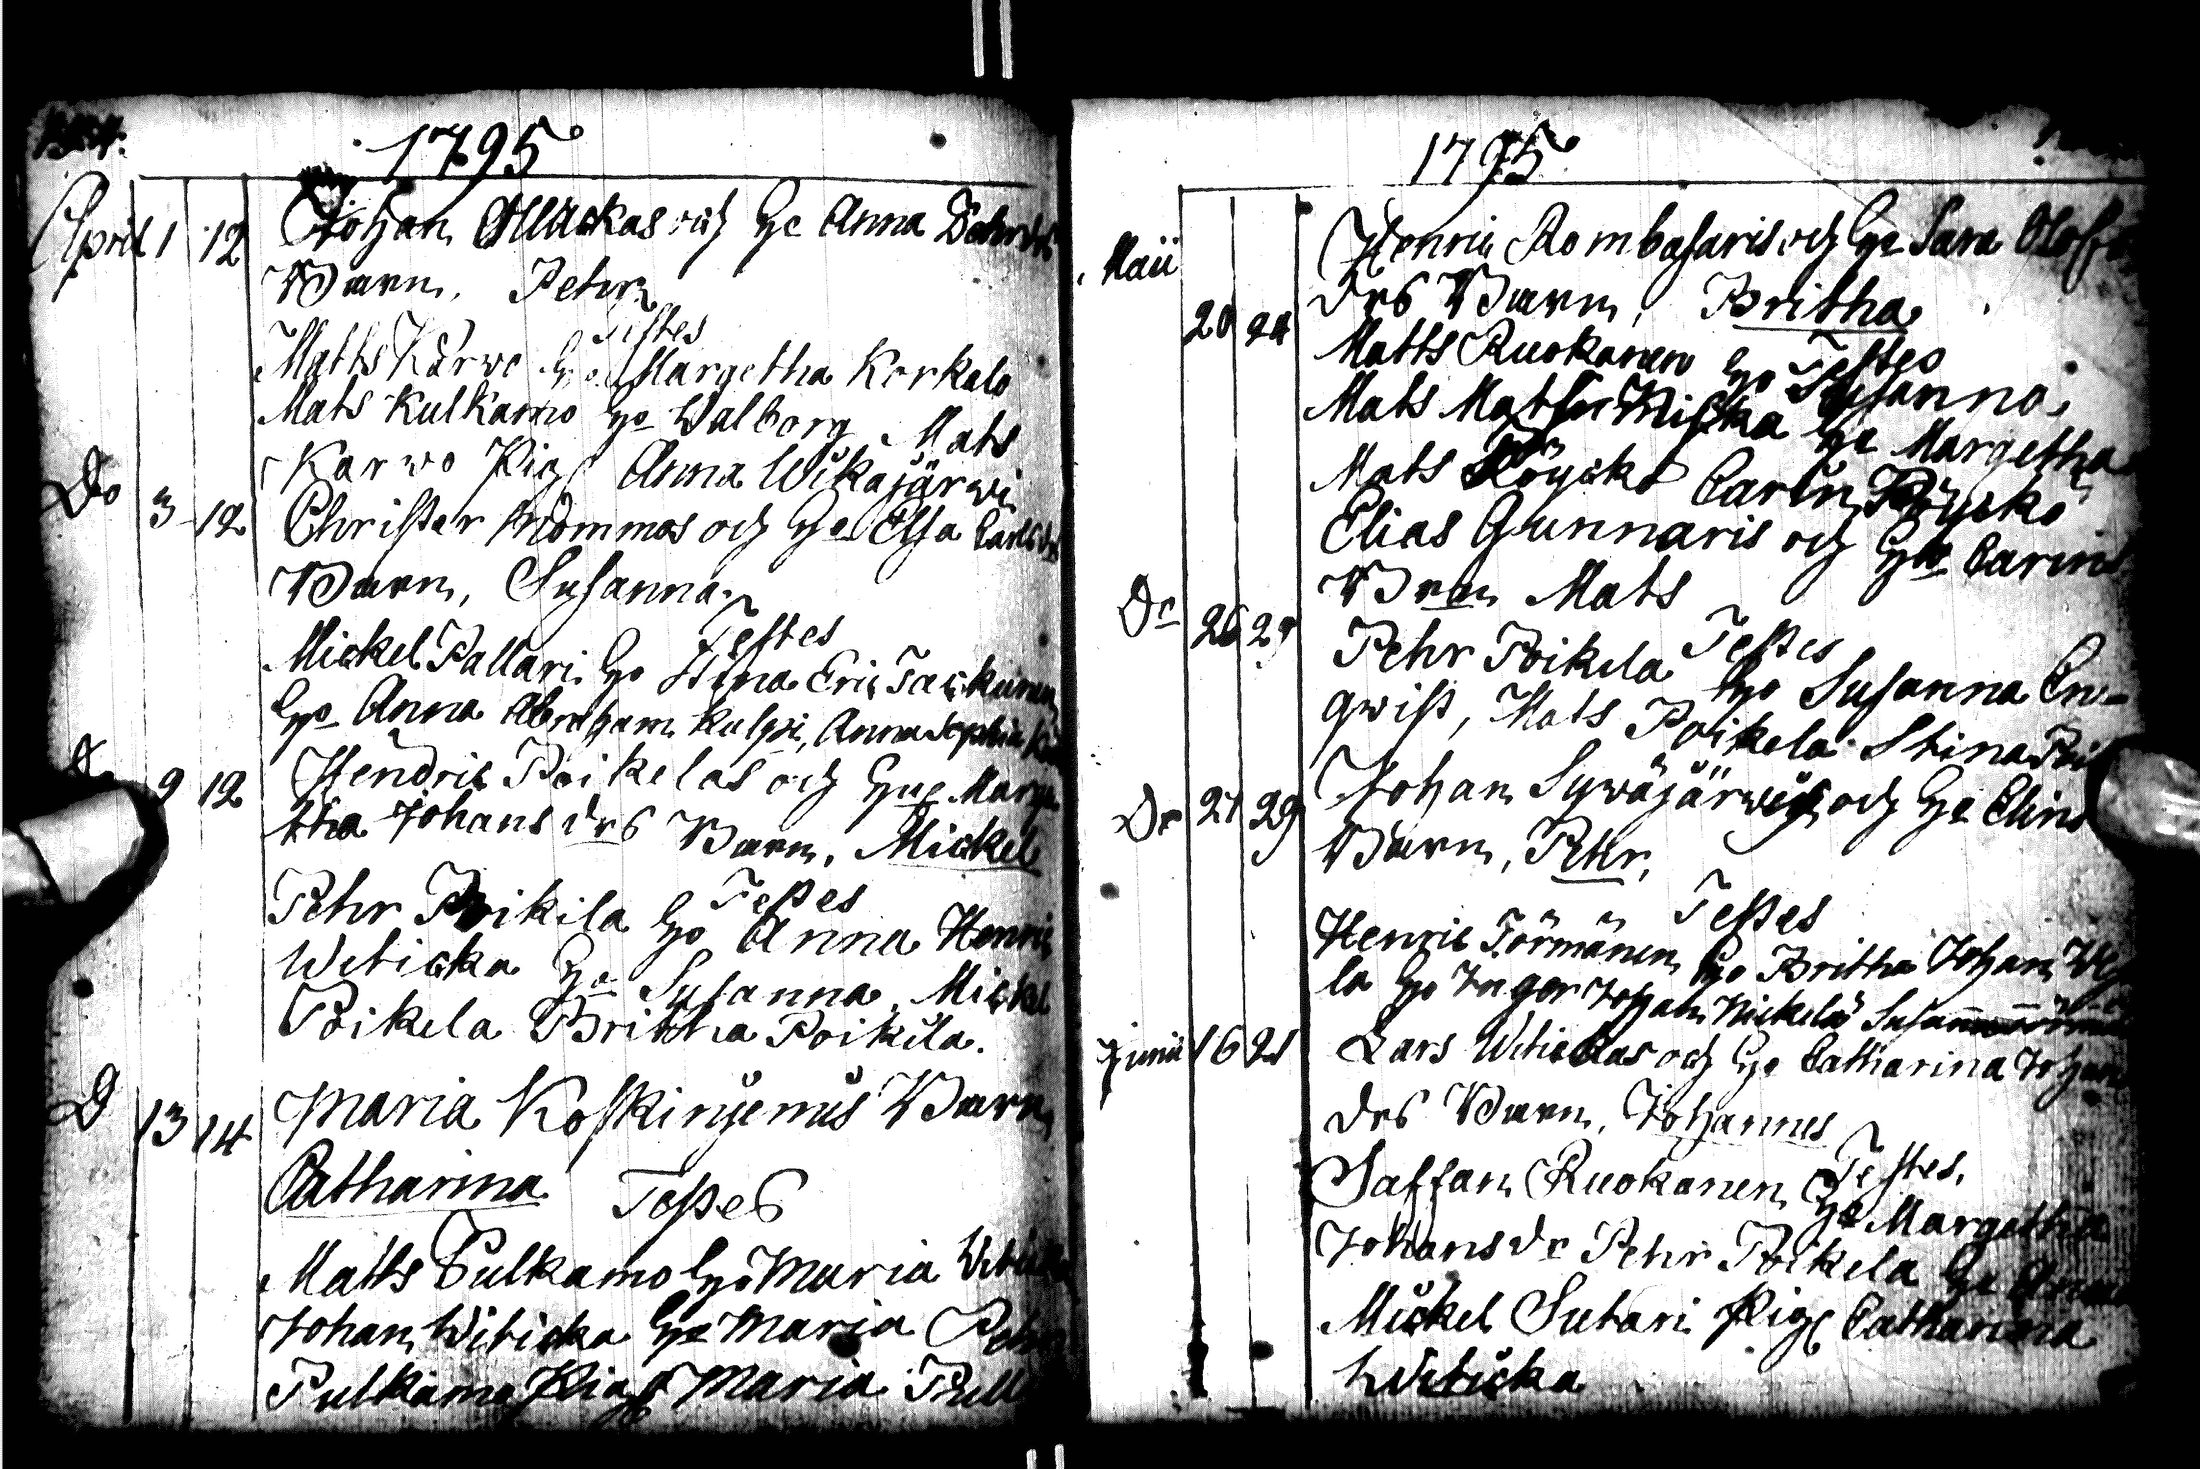 1795
April 1 12 Johan Ollickas och H. Anna
Barn, Pehr
Testes
Matts Karvo H:o Margetha Korkalo
Mats Kulkamo H:o Walborg Mats
Karvo Pig: Anna Wikajärwi
Do 3 12 Christer Mommos och H:o Elsa Carlsdr
Barn, Susanna
Testes
Mickel Pallari H:o Stina Eric
H:o Anna Abraham Kulpi, Anna Sophia
9 12 Hendric Poikelas och H:o Marge
tha Johans drs Barn, Mickel
Testes
Pehr Poikila H:o Anna Henric
Weticka H:o Susanna, Mickel
Poikela Britha Poikela.
D 13 14 Maria Koskinjemis Barn
Catharina Testes
Matts Pulkamo H:o Maria
Johan Witicka H:o Maria Pehr
Pulkamo Pig: Maria
1795
Maii Henric Rombasaris och H:o Sara Olofs
20 24 drs Barn, Britha
Testes
Matts Ruokanen H:o Susanna
Mats Matsson Niska H:o Margetha
Mats Pöyckö Carin Pöyckö
Elias Gunnaris och H:o Carins
Do 26 29 Barn Mats
Testes
Pehr Poikela H:o Susanna En-
qwist, Mats Poikela Stina Poi
Do 27 29 Johan Sywäjärwis och H:o Elins
Barn, Pehr,
Testes
Henric Törmänen H:o Britha Johan
la H:o Inger Johan Nickelä
Junii 16 21 Lars Wetickas och H:o Catharina Johans
drs Barn, Johannes
Testes.
Saffan Ruokanen H:o Margetha
Johansdr Pehr Poikela H:o Anna
Mickel Sutari Pig: Catharina
Weticka